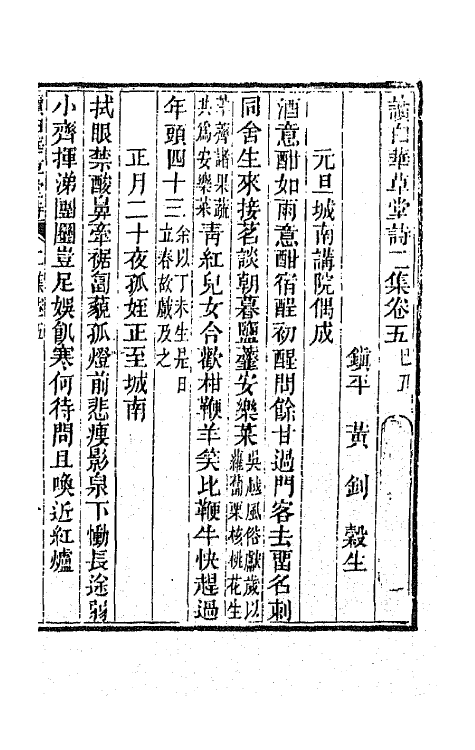 讀白華草堂詩二集卷五 己丑
鎭平 黃釗 穀生
元旦城南講院偶成
酒意酣如雨意酣宿酲初醒問餘甘過門客去畱名刺
同舍生來接茗談朝暮鹽虀安樂菜 吳越風俗獻歲以蘿蔔栗核桃花生
荸薺諸果蔬共爲安樂菜 青紅兒女合歡柑鞭羊笑比鞭牛快趕過
年頭四十三 余以丁未生是日立春故戲及之
正月二十夜孤姪正至城南
拭眼禁酸鼻牽裾劄藐孤燈前悲瘦影泉下慟長途弱
小齊揮涕團圞豈足娛飢寒何待問且喚近紅爐